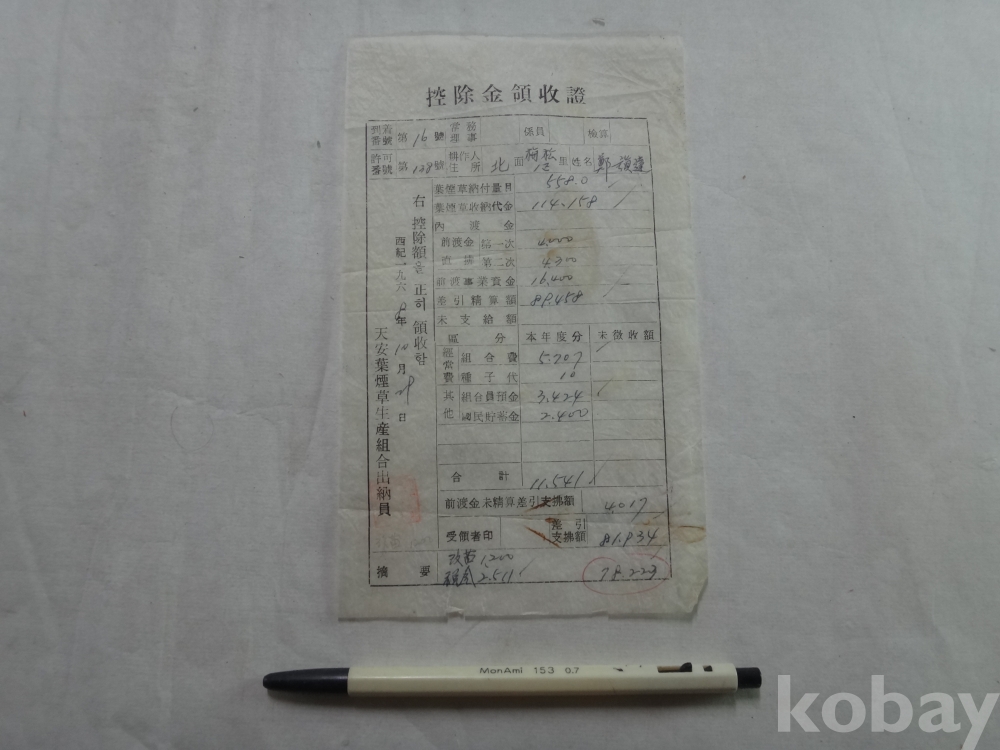 控除金領收證
到着番號 第16號 常務理事 係員 檢算
許可番號 第128號 耕作人住所 北面 梅松里 姓名 鄭
葉煙草納付量目 558.0
葉煙草收納代金 114.158
內渡金
前渡金 第一次 4.000
直接 第二次 4.300
前渡事業資金 16.400
差引精算額 89.458
未支給額
區分 本年度分 未徵收額
經常費 組合費 5.707
種子代 10
其他 組合員預金 3.424
國民貯蓄金 2.400
合計 11.541
前渡金未精算差引支拂額 4.017
受領者印 差引支拂額 81.934
摘要 改苗 1,200
税金 2.511
78.223
右 控除額을 正히 領收함
西紀一九六8年10月
天安葉煙草生産組合出納員
MonAmi 153 0.7
kobay